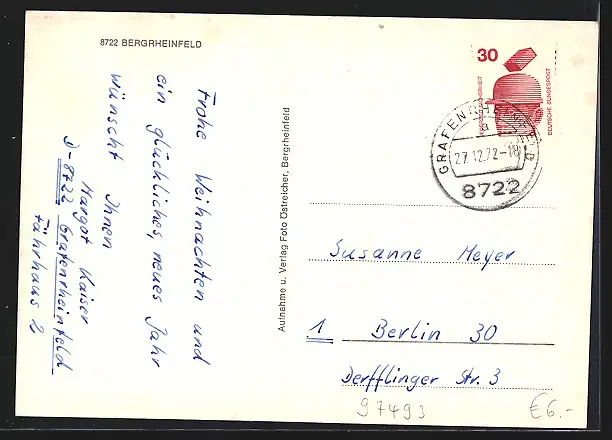 8722 BERGRHEINFELD
Frohe Weihnachten und
ein glückliches, neues Jahr
wünscht Ihnen
Margot Kaiser
D-8722 Grafenrheinfeld
Fährhaus 2
Aufnahme u. Verlag Foto Ostreicher, Bergrheinfeld
30
DEUTSCHE BUNDESPOST
GRAFENRHEINFELD
a
27.12.72-18
8722
Susanne Meyer
1 Berlin 30
Derfflinger Str. 3
97493
€6.-